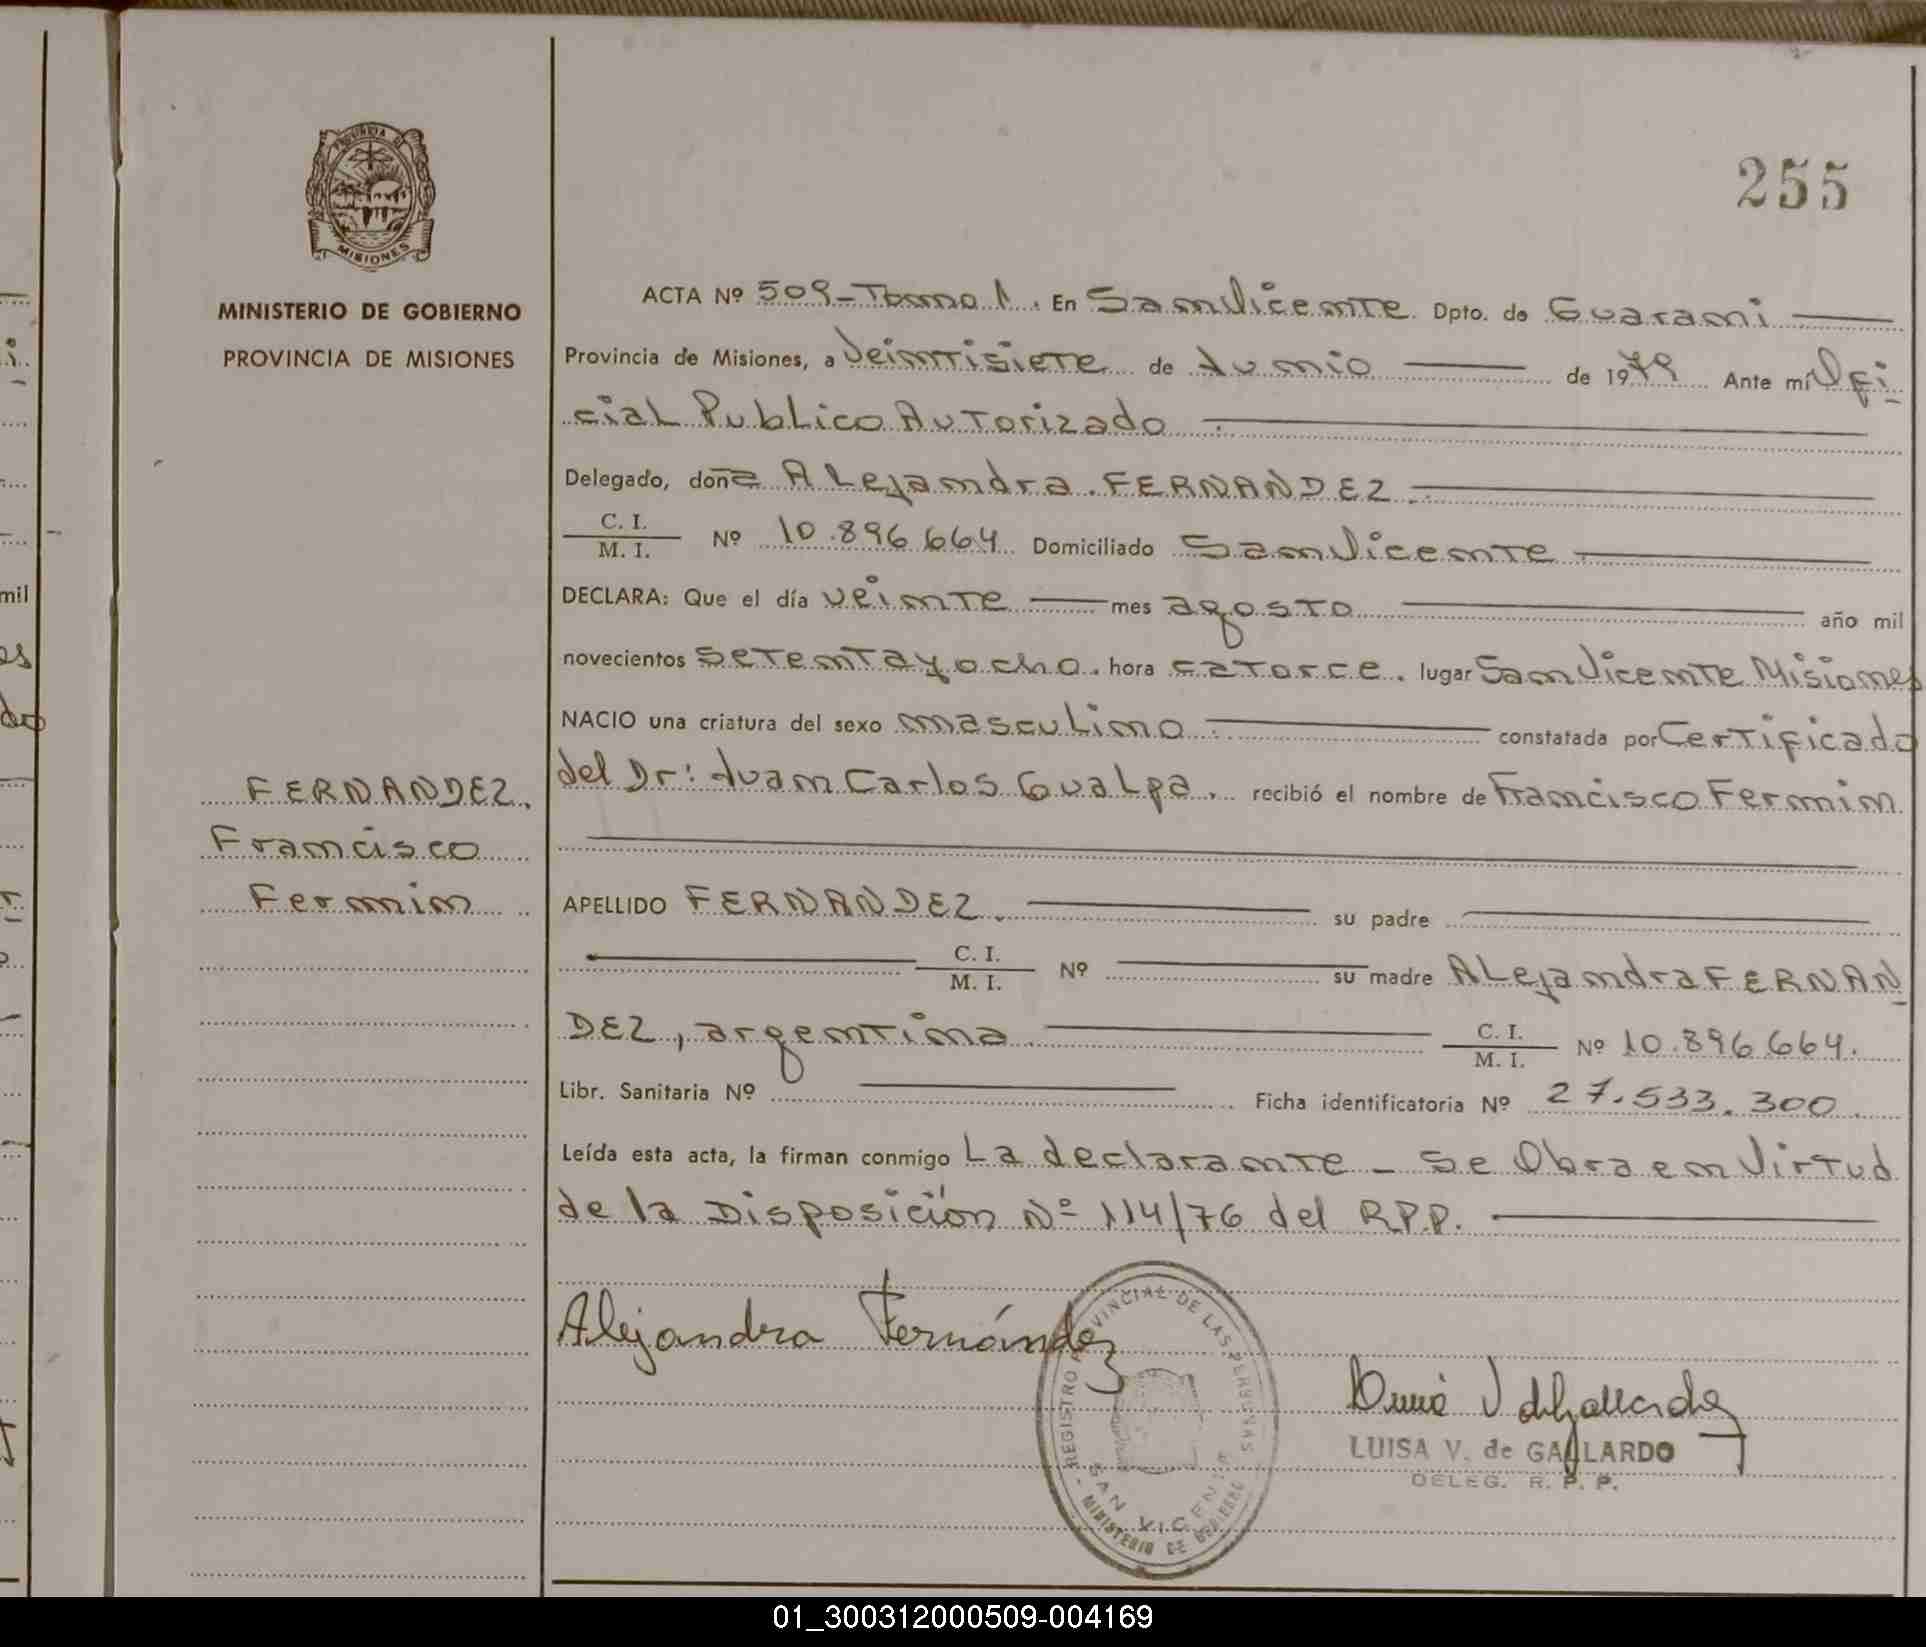 PROVINCIA DE
MISIONES
MINISTERIO DE GOBIERNO
PROVINCIA DE MISIONES
255
ACTA Nº 509-Tomo 1. En San Vicente Dpto. de Guarani
Provincia de Misiones, a Veintisiete de Junio de 1979 Ante mí Ofi
cial Publico Autorizado
Delegado, doña Alejandra FERNANDEZ
C. I.
M. I. Nº 10.896.664 Domiciliado San Vicente
DECLARA: Que el día veinte mes agosto año mil
novecientos setenta y ocho. hora catorce. lugar San Vicente Misiones
NACIO una criatura del sexo masculino constatada por Certificado
del Dr: Juan Carlos Gualpa. recibió el nombre de Francisco Fermin
FERNANDEZ.
Francisco
Fermin
APELLIDO FERNANDEZ. su padre
C. I.
M. I. Nº su madre Alejandra FERNAN
DEZ, argentina C. I.
M. I. Nº 10.896.664.
Libr. Sanitaria Nº Ficha identificatoria Nº 27.533.300
Leída esta acta, la firman conmigo La declarante - Se Obra en Virtud
de la Disposición Nº 114/76 del R.P.P.
Alejandra Fernández
REGISTRO PROVINCIAL DE LAS PERSONAS
SAN VICENTE
MINISTERIO DE GOBIERNO
LUISA V. de GALLARDO
DELEG. R. P. P.
mil
01_300312000509-004169